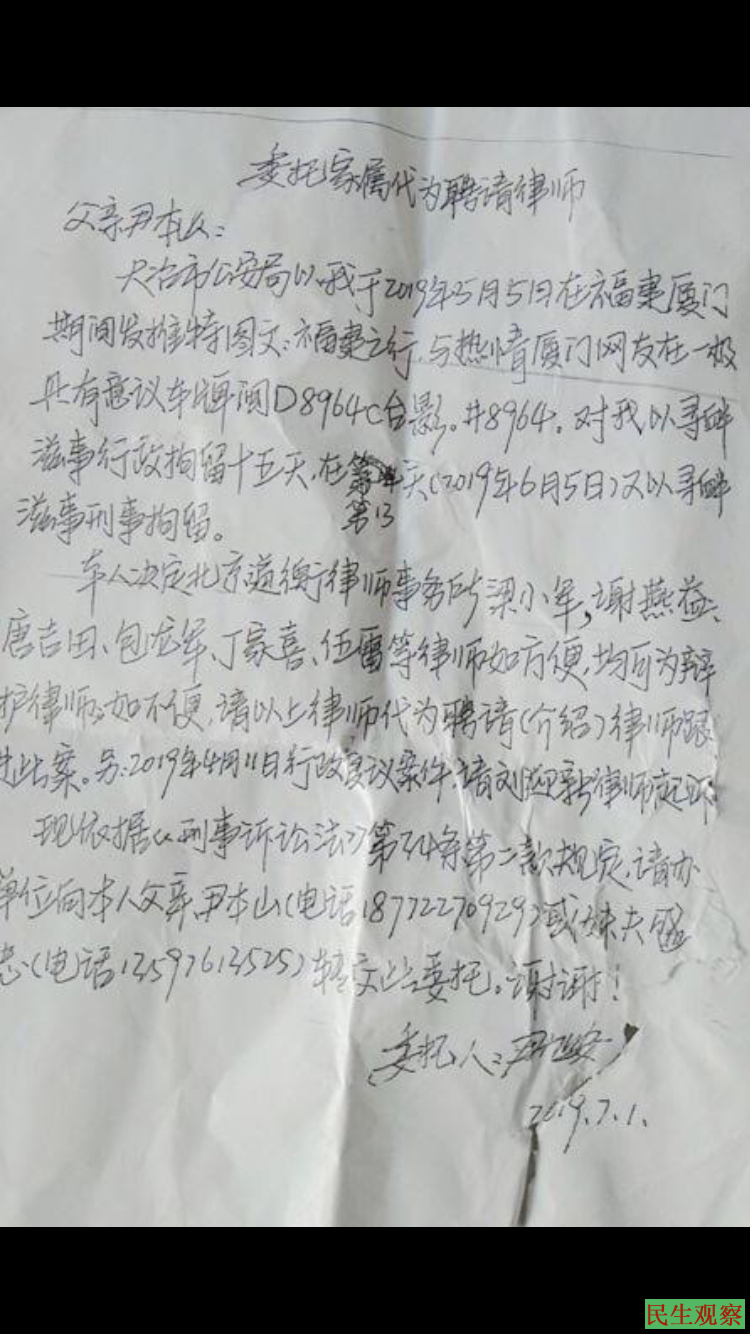 委托家属代为聘请律师
父亲尹本山:
大冶市公安局以我于2019年5月5日在福建厦门
期间发推特图文:福建之行,与热情厦门网友在一极
具有意议车牌闽D8964C合影。#8964。对我以寻衅
滋事行政拘留十五天,在第天(2019年6月5日)又以寻衅
第13
滋事刑事拘留。
本人决定北京道衡律师事务所梁小军,谢燕益、
唐吉田、包龙军、丁家喜、伍雷等律师如方便,均可为辩
护律师。如不便,请以上律师代为聘请(介绍)律师跟
进此案。另:2019年4月11日行政复议案件,请刘迎新律师起诉
现依据《刑事诉讼法》第34条第二款规定,请办
单位向本人父亲尹本山(电话18772270929)或妹夫
志(电话13597613525)转交此委托。谢谢!
委托人:尹旭安
2019.7.1.
民生观察